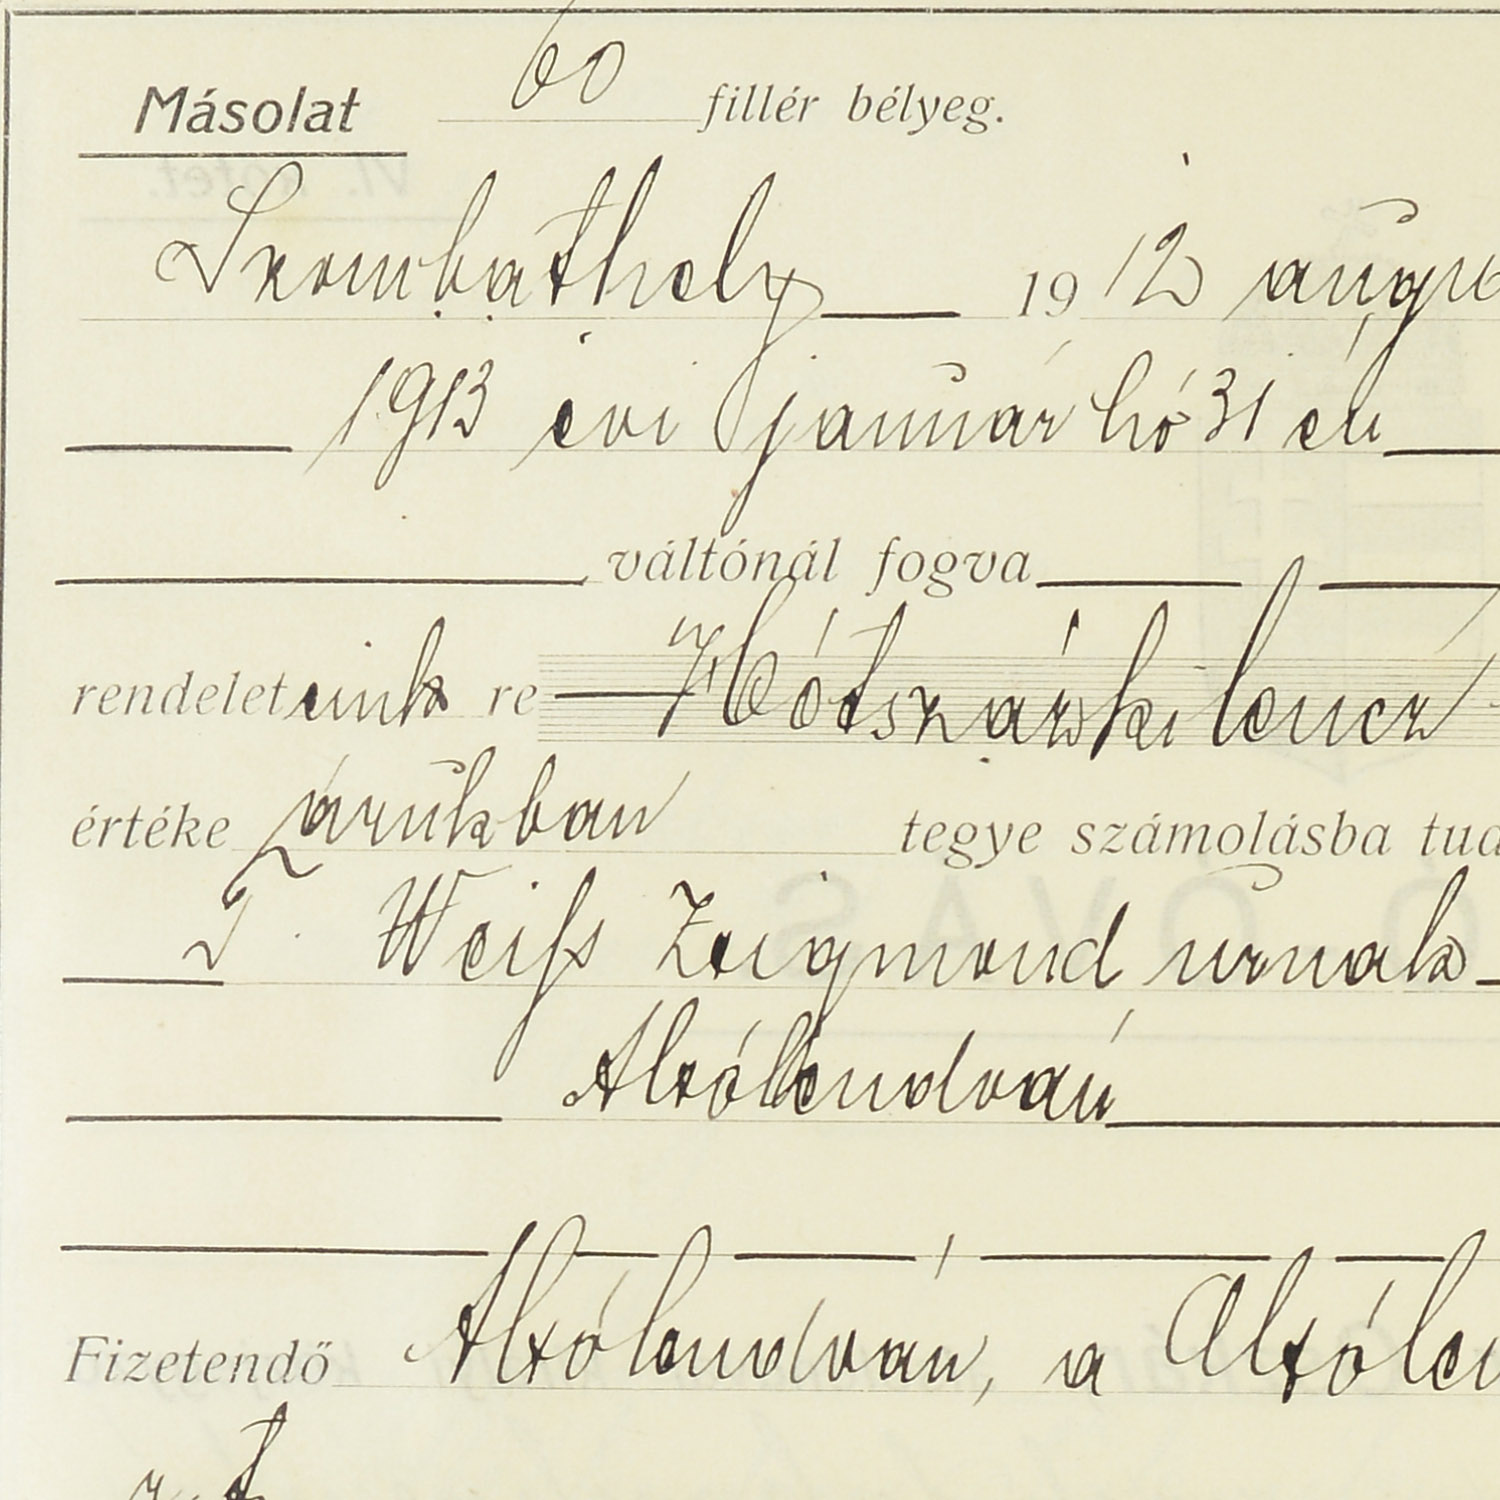 Másolat 60 fillér bélyeg.
Szombathely 1912 augus
1913 évi január hó 31 én
váltónál fogva
rendeleteink re Hétszázkilencz
értéke árukban tegye számolásba tud
T. Weiss Zsigmond urnak
Alsólendván
Fizetendő Alsólendván, a Alsólen